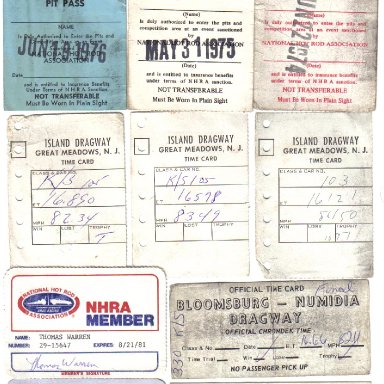 PIT PASS
NAME
Is Duly Authorized to Enter the Pits
JUN 19 1976
ASSOCIATION
(Date)
and is entitled to Insurance Benefits
Under Terms of N H R A Ins.
NOT TRANSFERABLE
Must Be Worn In Plain Sight
(Name)
Is duly authorized to enter the pits and
competition area at an event sanctioned
by the
NATIONAL HOT ROD ASSOCIATION
MAY 31 1975
(Date)
and is entitled to insurance benefits
under terms of NHRA ins.
NOT TRANSFERABLE
Must Be Worn in Plain Sight
(Name)
Is duly authorized to enter the pits and
competition area at an event sanctioned
by the
NATIONAL HOT ROD ASSOCIATION
1974
(Date)
and is entitled to insurance benefits
under terms of NHRA ins.
NOT TRANSFERABLE
Must Be Worn in Plain Sight
ISLAND DRAGWAY
GREAT MEADOWS, N. J.
TIME CARD
CLASS & CAR NO.
K/S 105
ET 16.850
MPH 82.34
WIN LOSS TROPHY
ISLAND DRAGWAY
GREAT MEADOWS, N. J.
TIME CARD
CLASS & CAR NO.
K/S 105
ET 16.598
MPH 83.49
WIN LOSS TROPHY
ISLAND DRAGWAY
GREAT MEADOWS, N. J.
TIME CARD
CLASS & CAR NO.
103
ET
MPH
WIN LOSS TROPHY
NATIONAL HOT ROD
ASSOCIATION
NHRA
MEMBER
NAME: THOMAS WARREN
NUMBER: 29-15647 EXPIRES: 8/21/81
Thomas Warren
MEMBER'S SIGNATURE
OFFICIAL TIME CARD
BLOOMSBURG — NUMIDIA
DRAGWAY
OFFICIAL CHRONDEK TIME
Class & No. E.T. MPH
Time Trial Win Loss Trophy
NO PASSENGER PICK UP